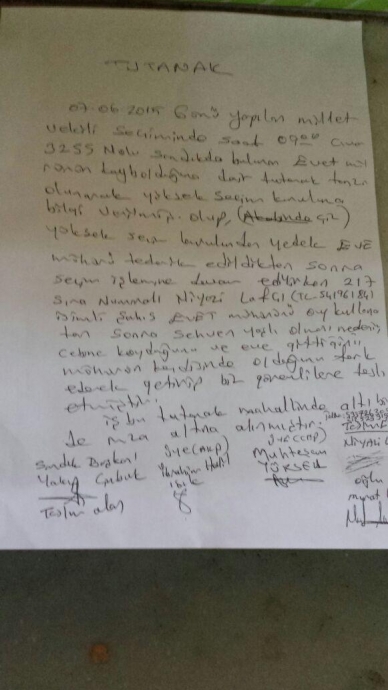 TUTANAK
07-06-2015 Günü yapılan millet
vekili seçiminde saat 09:00 civa
3255 Nolu Sandıkda bulunan Evet mü
hürünün kaybolduğuna dair tutanak tanzi
olunarak yüksek seçim kuruluna
bilgi verilmiş olup,
yüksek seçim kurulundan yedek EVE
mührü tedarik edildikten sonra
seçim işlemine devam edilirken 217
sıra Numaralı Niyazi
isimli şahıs EVET mühürünü oy kullana
tan sonra sehven yaşlı olması nedeni
cebine koyduğunu ve eve gittiğini
mühürün kendisinde olduğunu fark
ederek getirip biz görevlilere tesli
etmiştir.
iş bu tutanak mahallinde altı bi
de imza altına alınmıştır.
Sandık Başkanı
Yakup
Üye (AKP)
İbrahim Halil
Üye (CHP)
Muhterem
YÜKSEL
Teslim
Niyazi
oğlu
murat
Teslim alan